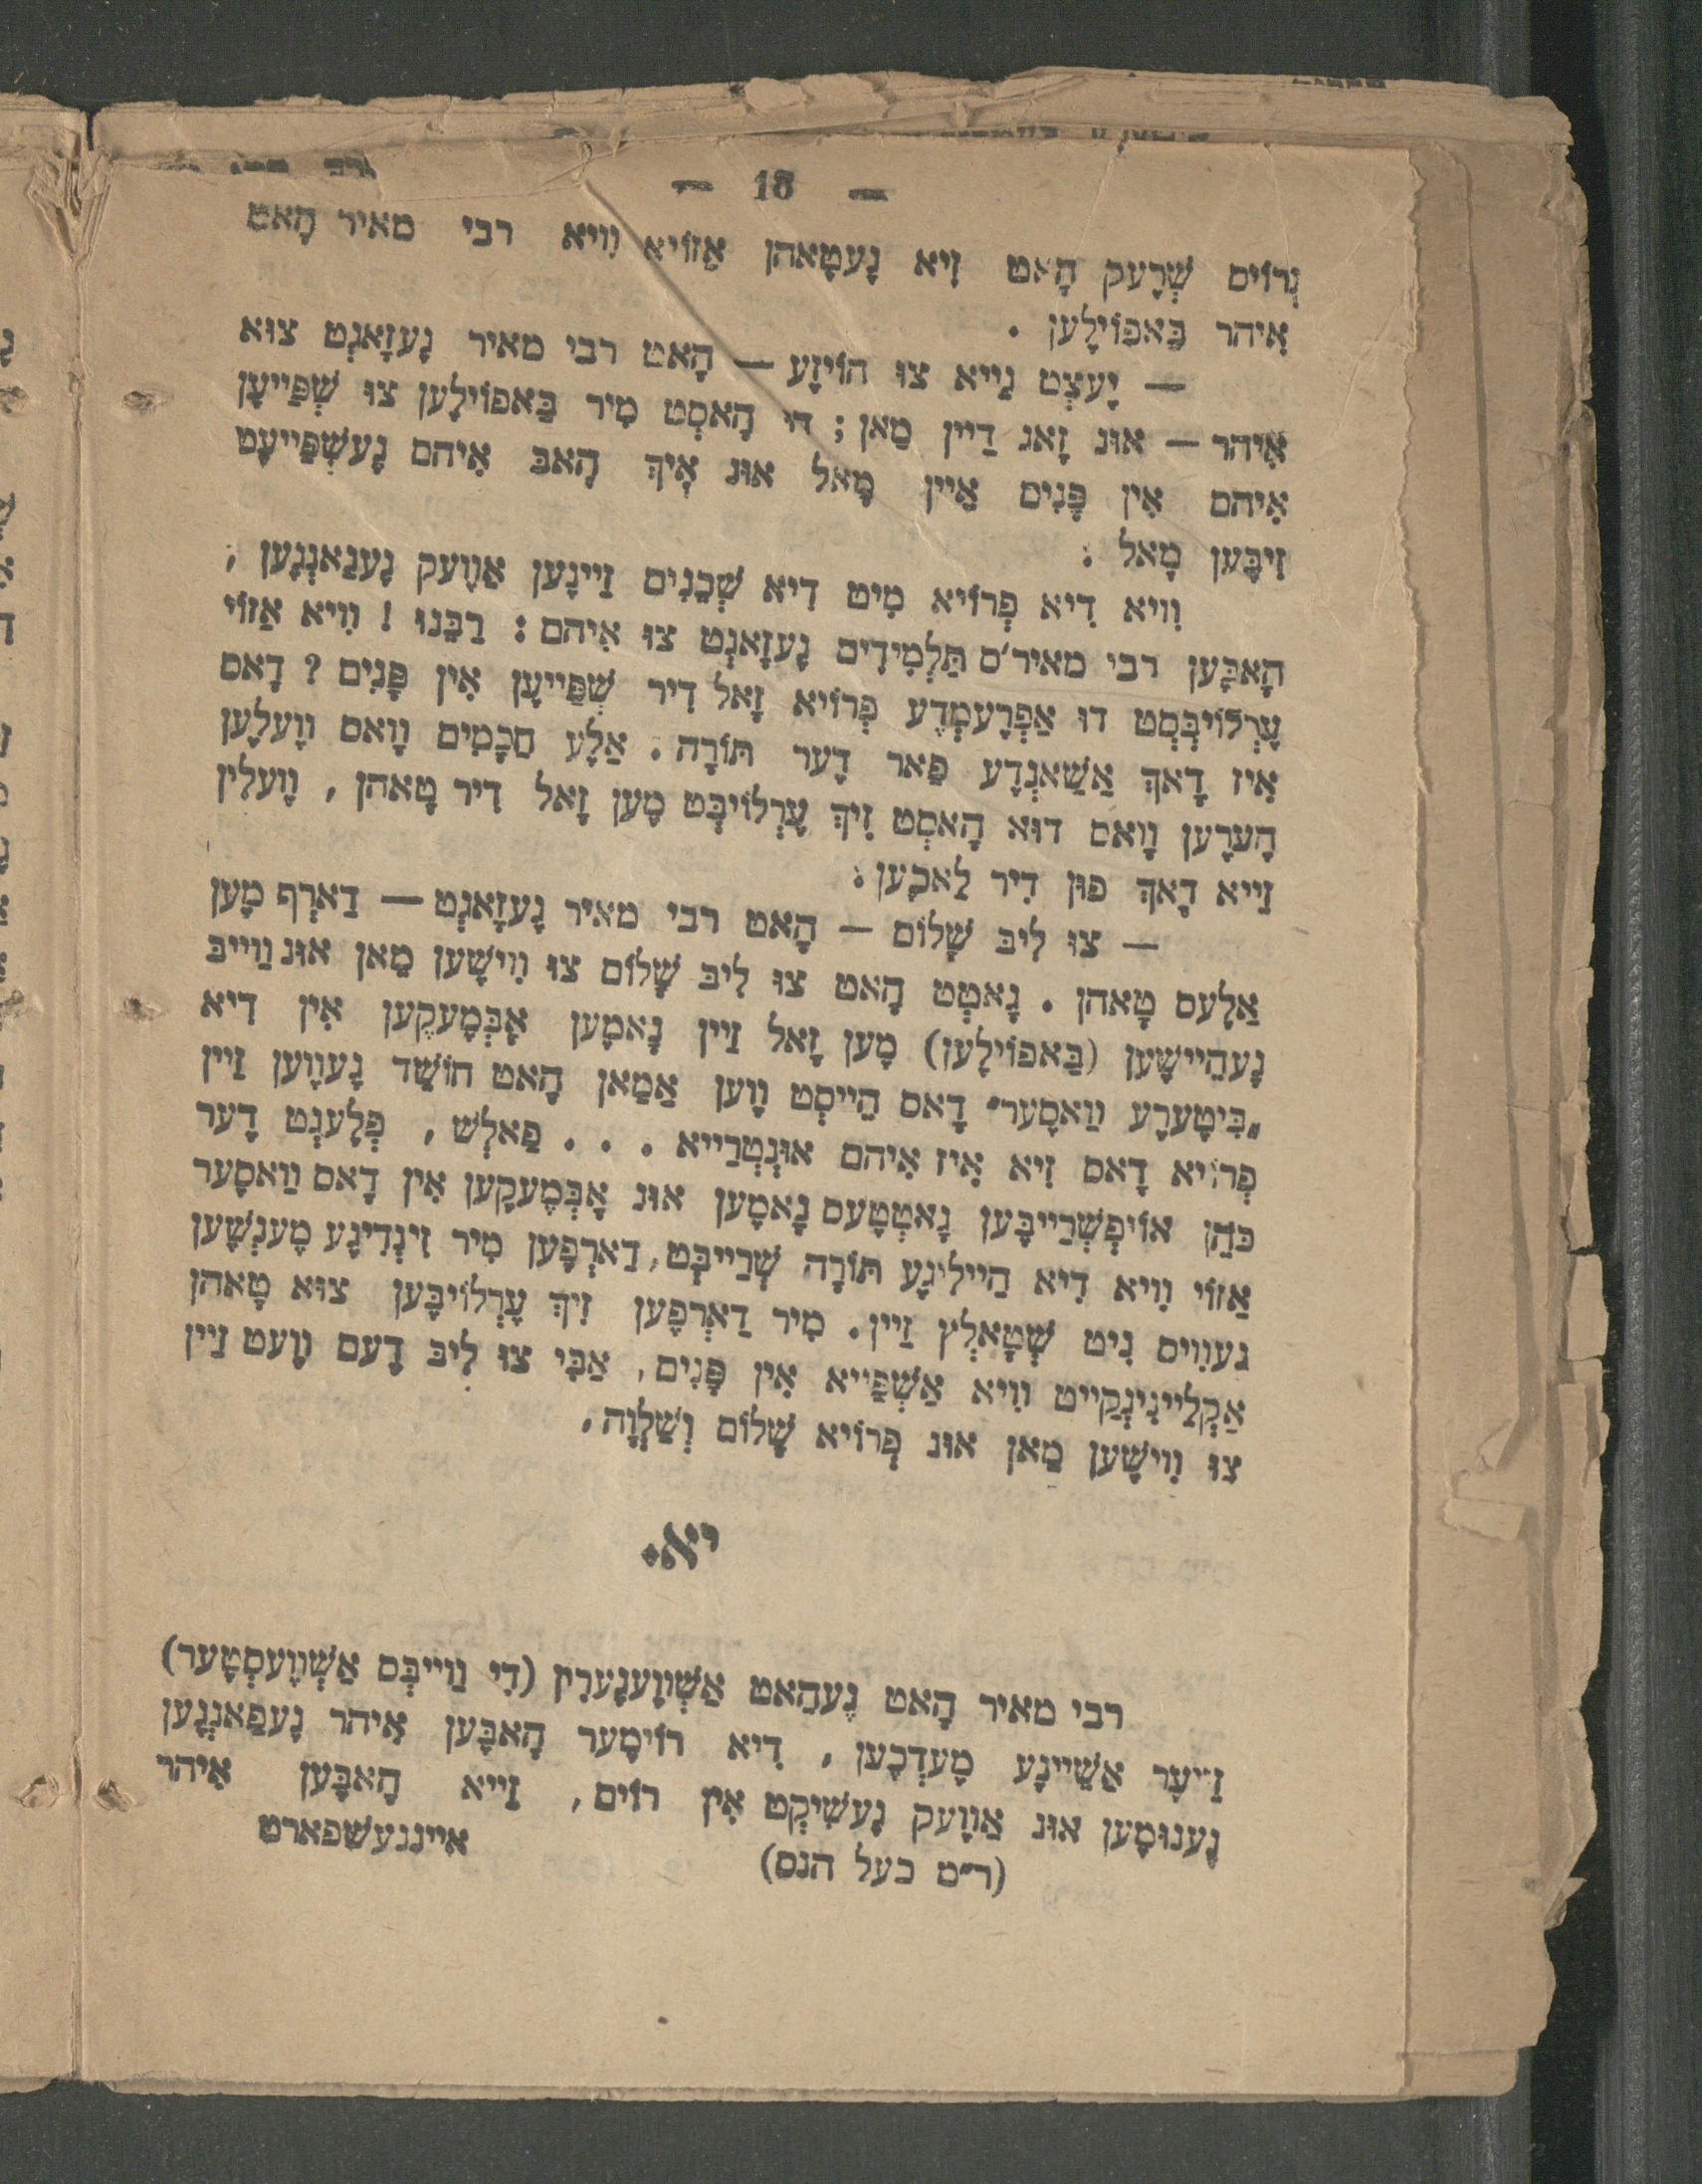 — 18 —
גְרוֹים שְׁרָעק הָאט זִיא גָעטָאהן אַזוֹיא וִויא רבי מאיר הָאט
אִיהר בַּאפוֹילָען .
— יָעצְט גַייא צוּ הוֹיזָע — הָאט רבי מאיר גָעזָאגְט צוּא
אִיהר — אוּנ זָאג דַיין מַאן ; דוּ הָאסְט מִיר בַּאפוֹילָען צוּ שְׁפַּייעָן
אִיהם אִין פָּנִים אַיין מָאל אוּנ אִיךְ הָאבּ אִיהם גָעשְׁפַּייעָט
זִיבָּען מָאל .
וִויא דִיא פְרוֹיא מִיט דִיא שְׁכֵנִים זַיינָען אַוָועק גָעגַאנְגָען ,
הָאבָּען רבי מאיר׳ס תַּלְמִידִים גָעזָאגְט צוּ אִיהם : רַבֵּנוּ ! וִויא אַזוֹי
עָרְלוֹיבְּסְט דוּ אַפְרָעמְדֶע פְרוֹיא זָאל דִיר שְׁפַּייעָן אִין פָּנִים ? דָאס
אִיז דָאךְ אַשַׁאנְדָע פַאר דָער תּוֹרָה . אַלָע חֲכָמִים וָואס וָועלָען
הָערָען וָואס דוּא הָאסְט זִיךְ עָרְלוֹיבְּט מָען זָאל דִיר טָאהן , וָועלִין
זֵייא דָאךְ פוּן דִיר לַאכָען .
— צוּ לִיבּ שָׁלוֹם — הָאט רבי מאיר גָעזָאגְט — דַארְף מָען
אַלָעס טָאהן . גָאטְט הָאט צוּ לִיבּ שָׁלוֹם צוּ וִוישָׁען מַאן אוּנ וַוייבּ
גָעהֵיישָׁען (בַּאפוֹילָען) מָען זָאל זַיין נָאמָען אָבְּמָעקָען אִין דִיא
„בִּיטָערָע וַואסָער״ דָאס הֵייסְט וָוען אַמַאן הָאט חוֹשֵׁד גָעוָוען זַיין
פְרוֹיא דָאס זִיא אִיז אִיהם אוּנְטְרַייא . . . פַאלְשׁ , פְלָעגְט דָער
כֹּהֵן אוֹיפְשְׁרַייבָּען גָאטְטָעס נָאמָען אוּנ אָבְּמָעקָען אִין דָאס וַואסָער
אַזוֹי וִויא דִיא הֵיילִיגָע תּוֹרָה שְׁרַייבְּט, דַארְפָען מִיר זִינְדִיגָע מָענְשָׁען
געוִויס נִיט שְׁטָאלְץ זַיין . מִיר דַארְפָען זִיךְ עָרְלוֹיבָּען צוּא טָאהן
אַקְלַיינִינְקַייט וִויא אַשְׁפַּייא אִין פָּנִים , אַבִּי צוּ לִיבּ דָעם וָועט זַיין
צוּ וִוישָׁען מַאן אוּנ פְרוֹיא שָׁלוֹם וְשַׁלְוָה .
יא.
רבי מאיר הָאט גָעהַאט אַשְׁוִועגָערִין (דִי וַוייבְּס אַשְׁוֶועסְטָער)
זֵייעָר אַשֵׁיינָע מָעדְכָען , דִיא רוֹימָער הָאבָּען אִיהר גָעפַאנְגָען
גָענוּמָען אוּנ אַוָועק גָעשִׁיקְט אִין רוֹים , זֵייא הָאבָּען אִיהר
(ר״מ בעל הנס) אײנגעשפארט